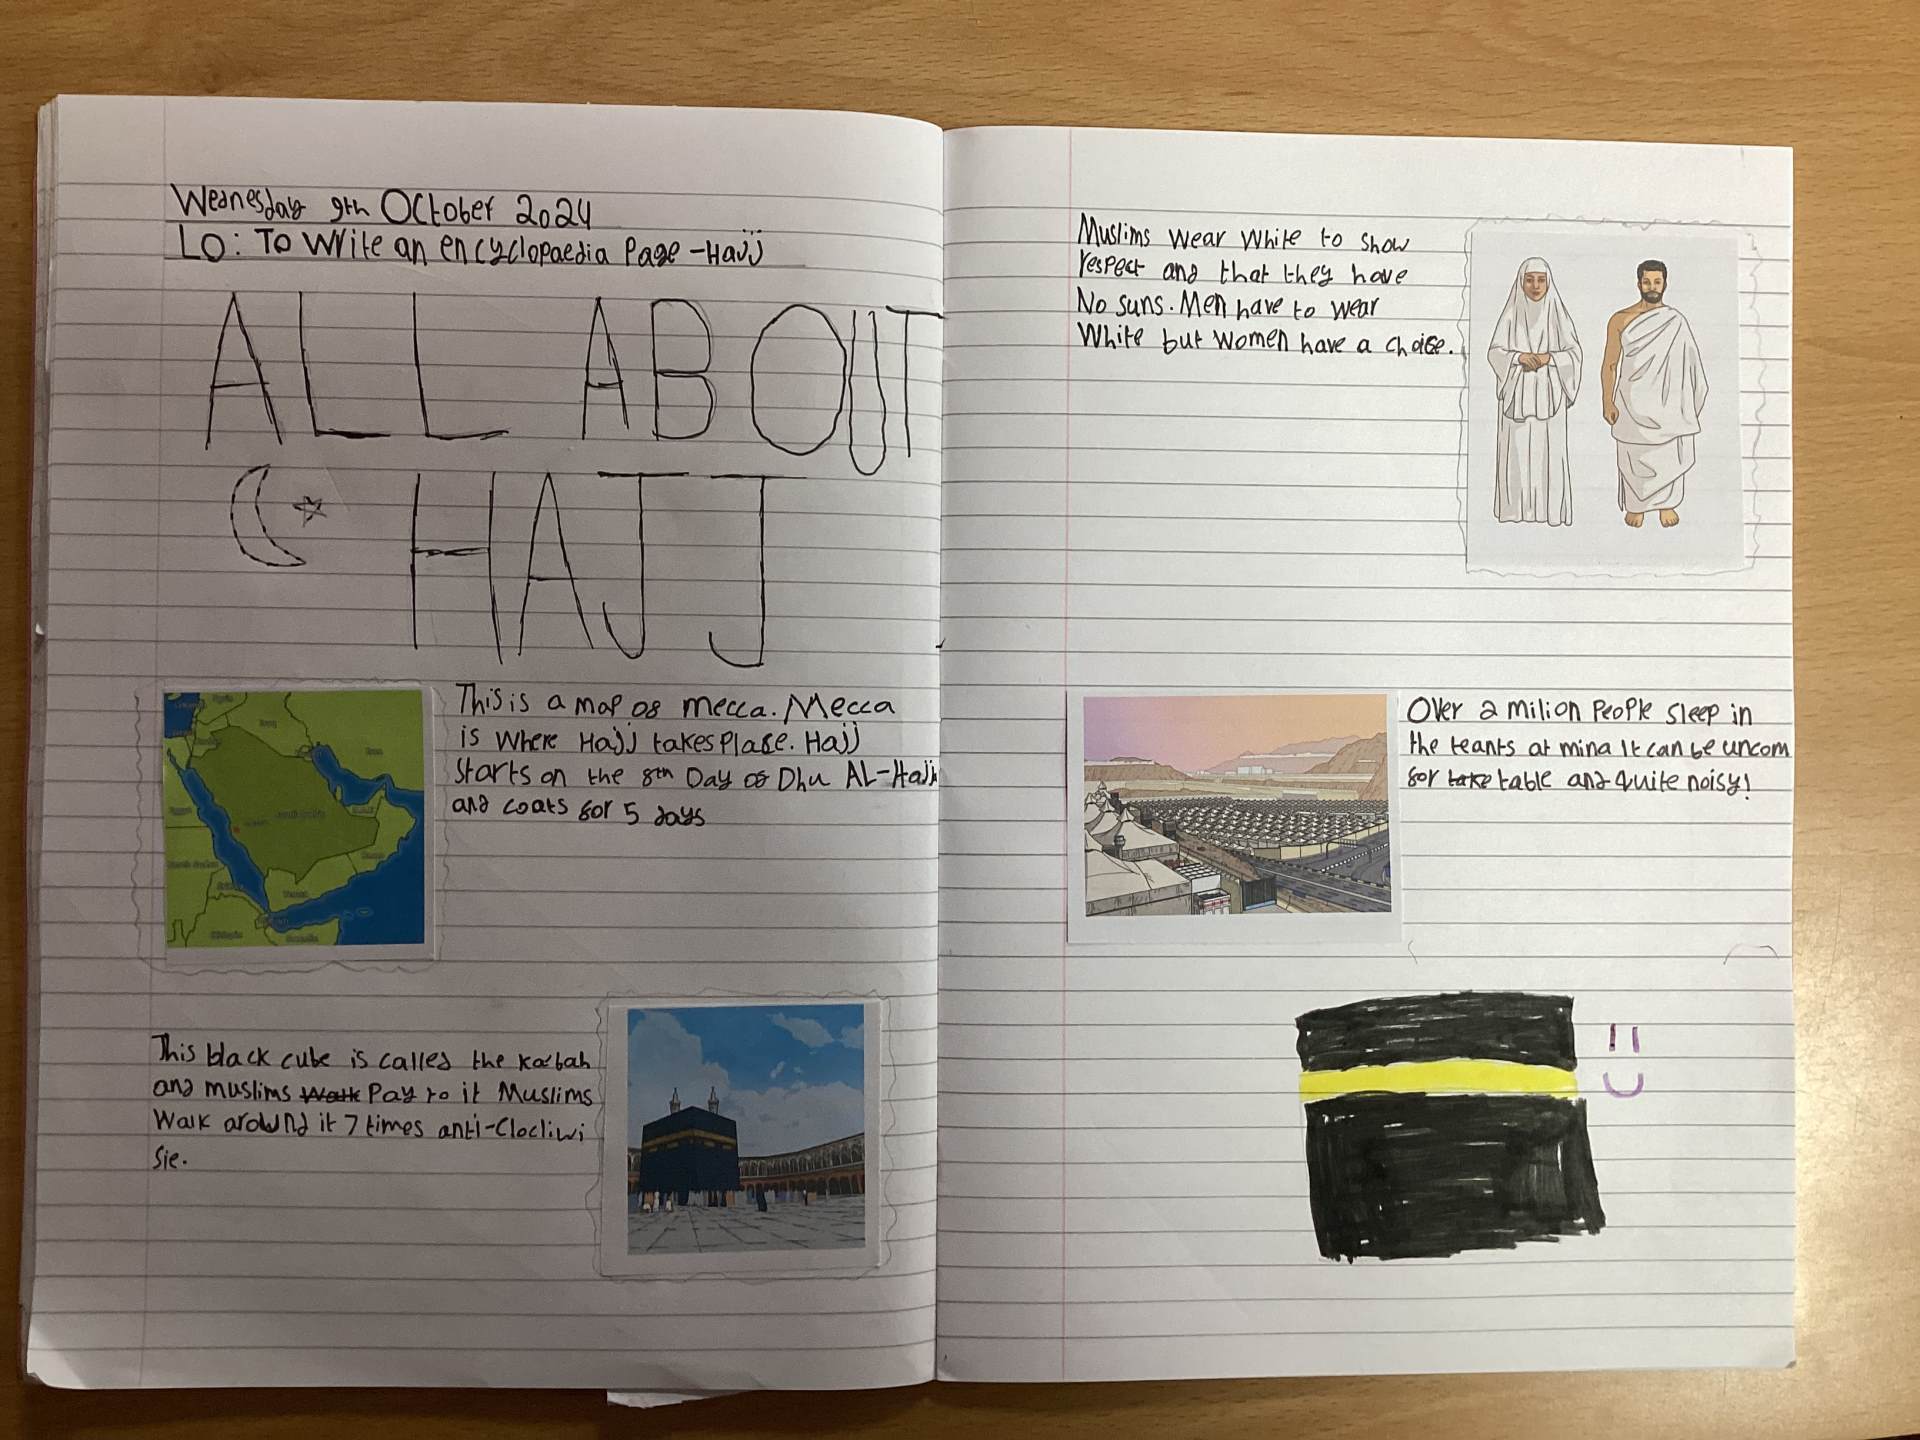 Wednesday 9th October 2024
LO: To write an encyclopaedia Page - Hajj
ALL ABOUT
HAJJ
This is a map of mecca. Mecca
is where Hajj takes place. Hajj
starts on the 8th Day of Dhu AL-Hajjh
and coats for 5 days
This black cube is called the ka'bah
and muslims Walk Pay to it Muslims
Walk around it 7 times anti-Clocliwi
sie.
Muslims wear white to show
respect and that they have
No suns. Men have to wear
White but women have a choise.
Over 2 milion People sleep in
the teants at mina It can be uncom
for take table and quite noisy!
Iraq
Iran
Saudi Arabia
Egypt
Yemen
Ethiopia
Somalia